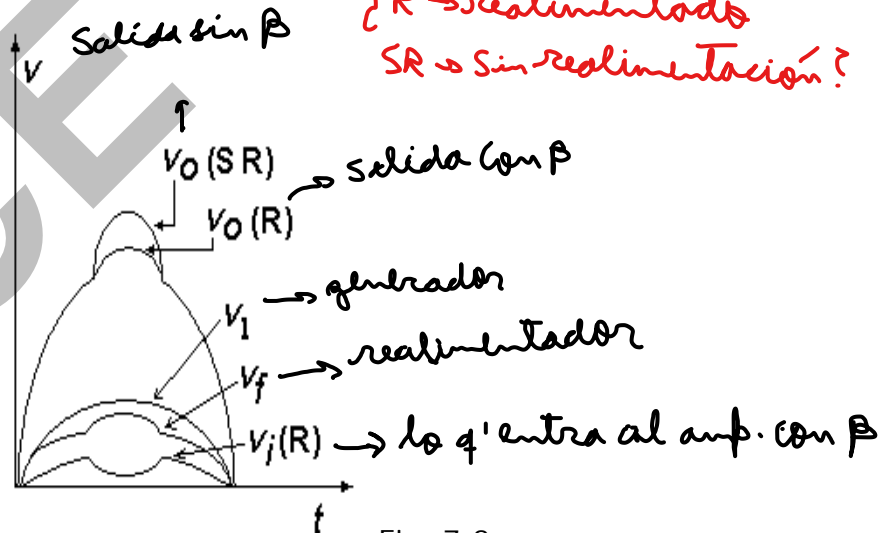 Salida sin β
¿R → realimentado
SR → Sin realimentación?
v
vO (S R)
vO (R) → Salida Con β
v1 → generador
vf → realimentador
vi (R) → lo q' entra al amp. con β
t